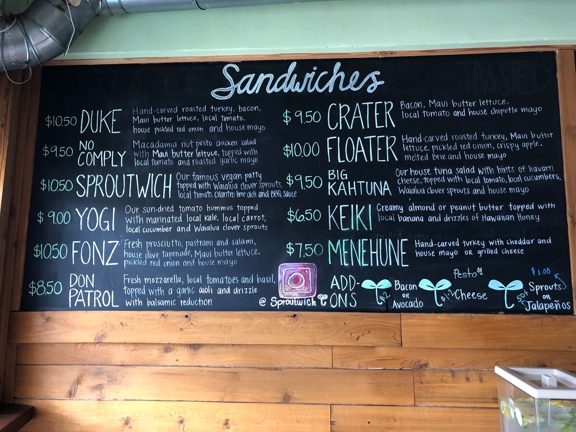 Sandwiches
$10.50 DUKE
Hand-carved roasted turkey, bacon,
Maui butter lettuce, local tomato,
house pickled red onion and house mayo
$9.50 NO COMPLY
Macadamia nut pesto chicken salad
with Maui butter lettuce, topped with
local tomato and roasted garlic mayo
$10.50 SPROUTWICH
Our famous vegan patty
topped with Waialua clover sprouts,
local tomato, cilantro and BBQ sauce
$9.00 YOGI
Our sun-dried tomato hummus topped
with marinated local kale, local carrot,
local cucumber and Waialua clover sprouts
$10.50 FONZ
Fresh prosciutto, pastrami and salami,
house olive tapenade, Maui butter lettuce,
pickled red onion and house mayo
$8.50 DON PATROL
Fresh mozzarella, local tomatoes and basil,
topped with a garlic aioli and drizzle
with balsamic reduction
@ Sproutwich
$9.50 CRATER
Bacon, Maui butter lettuce,
local tomato and house chipotle mayo
$10.00 FLOATER
Hand-carved roasted turkey, Maui butter
lettuce, pickled red onion, crispy apple,
melted brie and house mayo
$9.50 BIG KAHTUNA
Our house tuna salad with hints of havarti
cheese, topped with local tomato, local cucumbers,
Waialua clover sprouts and house mayo
$6.50 KEIKI
Creamy almond or peanut butter topped with
local banana and drizzles of Hawaiian Honey
$7.50 MENEHUNE
Hand-carved turkey with cheddar and
house mayo or grilled cheese
ADD-ONS
$2 Bacon or Avocado
Pesto
Cheese
$1.00
50¢ Sprouts or Jalapeños